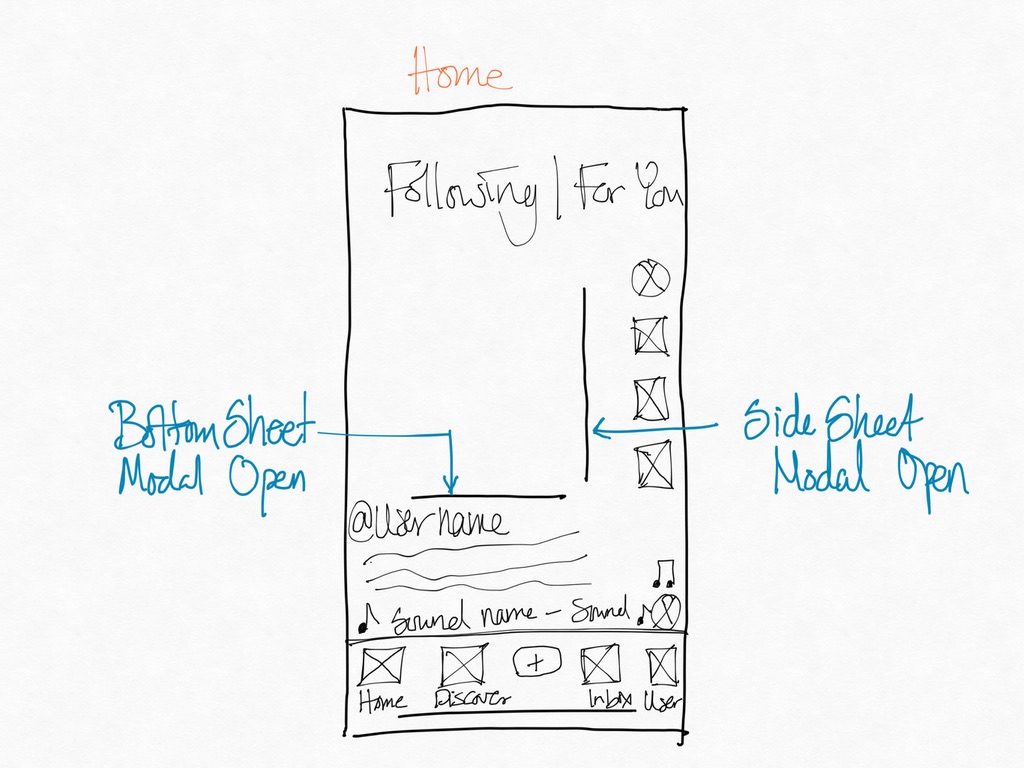 Home
Following | For You
Bottom Sheet
Modal Open
Side Sheet
Modal Open
@Username
Sound name - Sound
+
Home Discover Inbox User